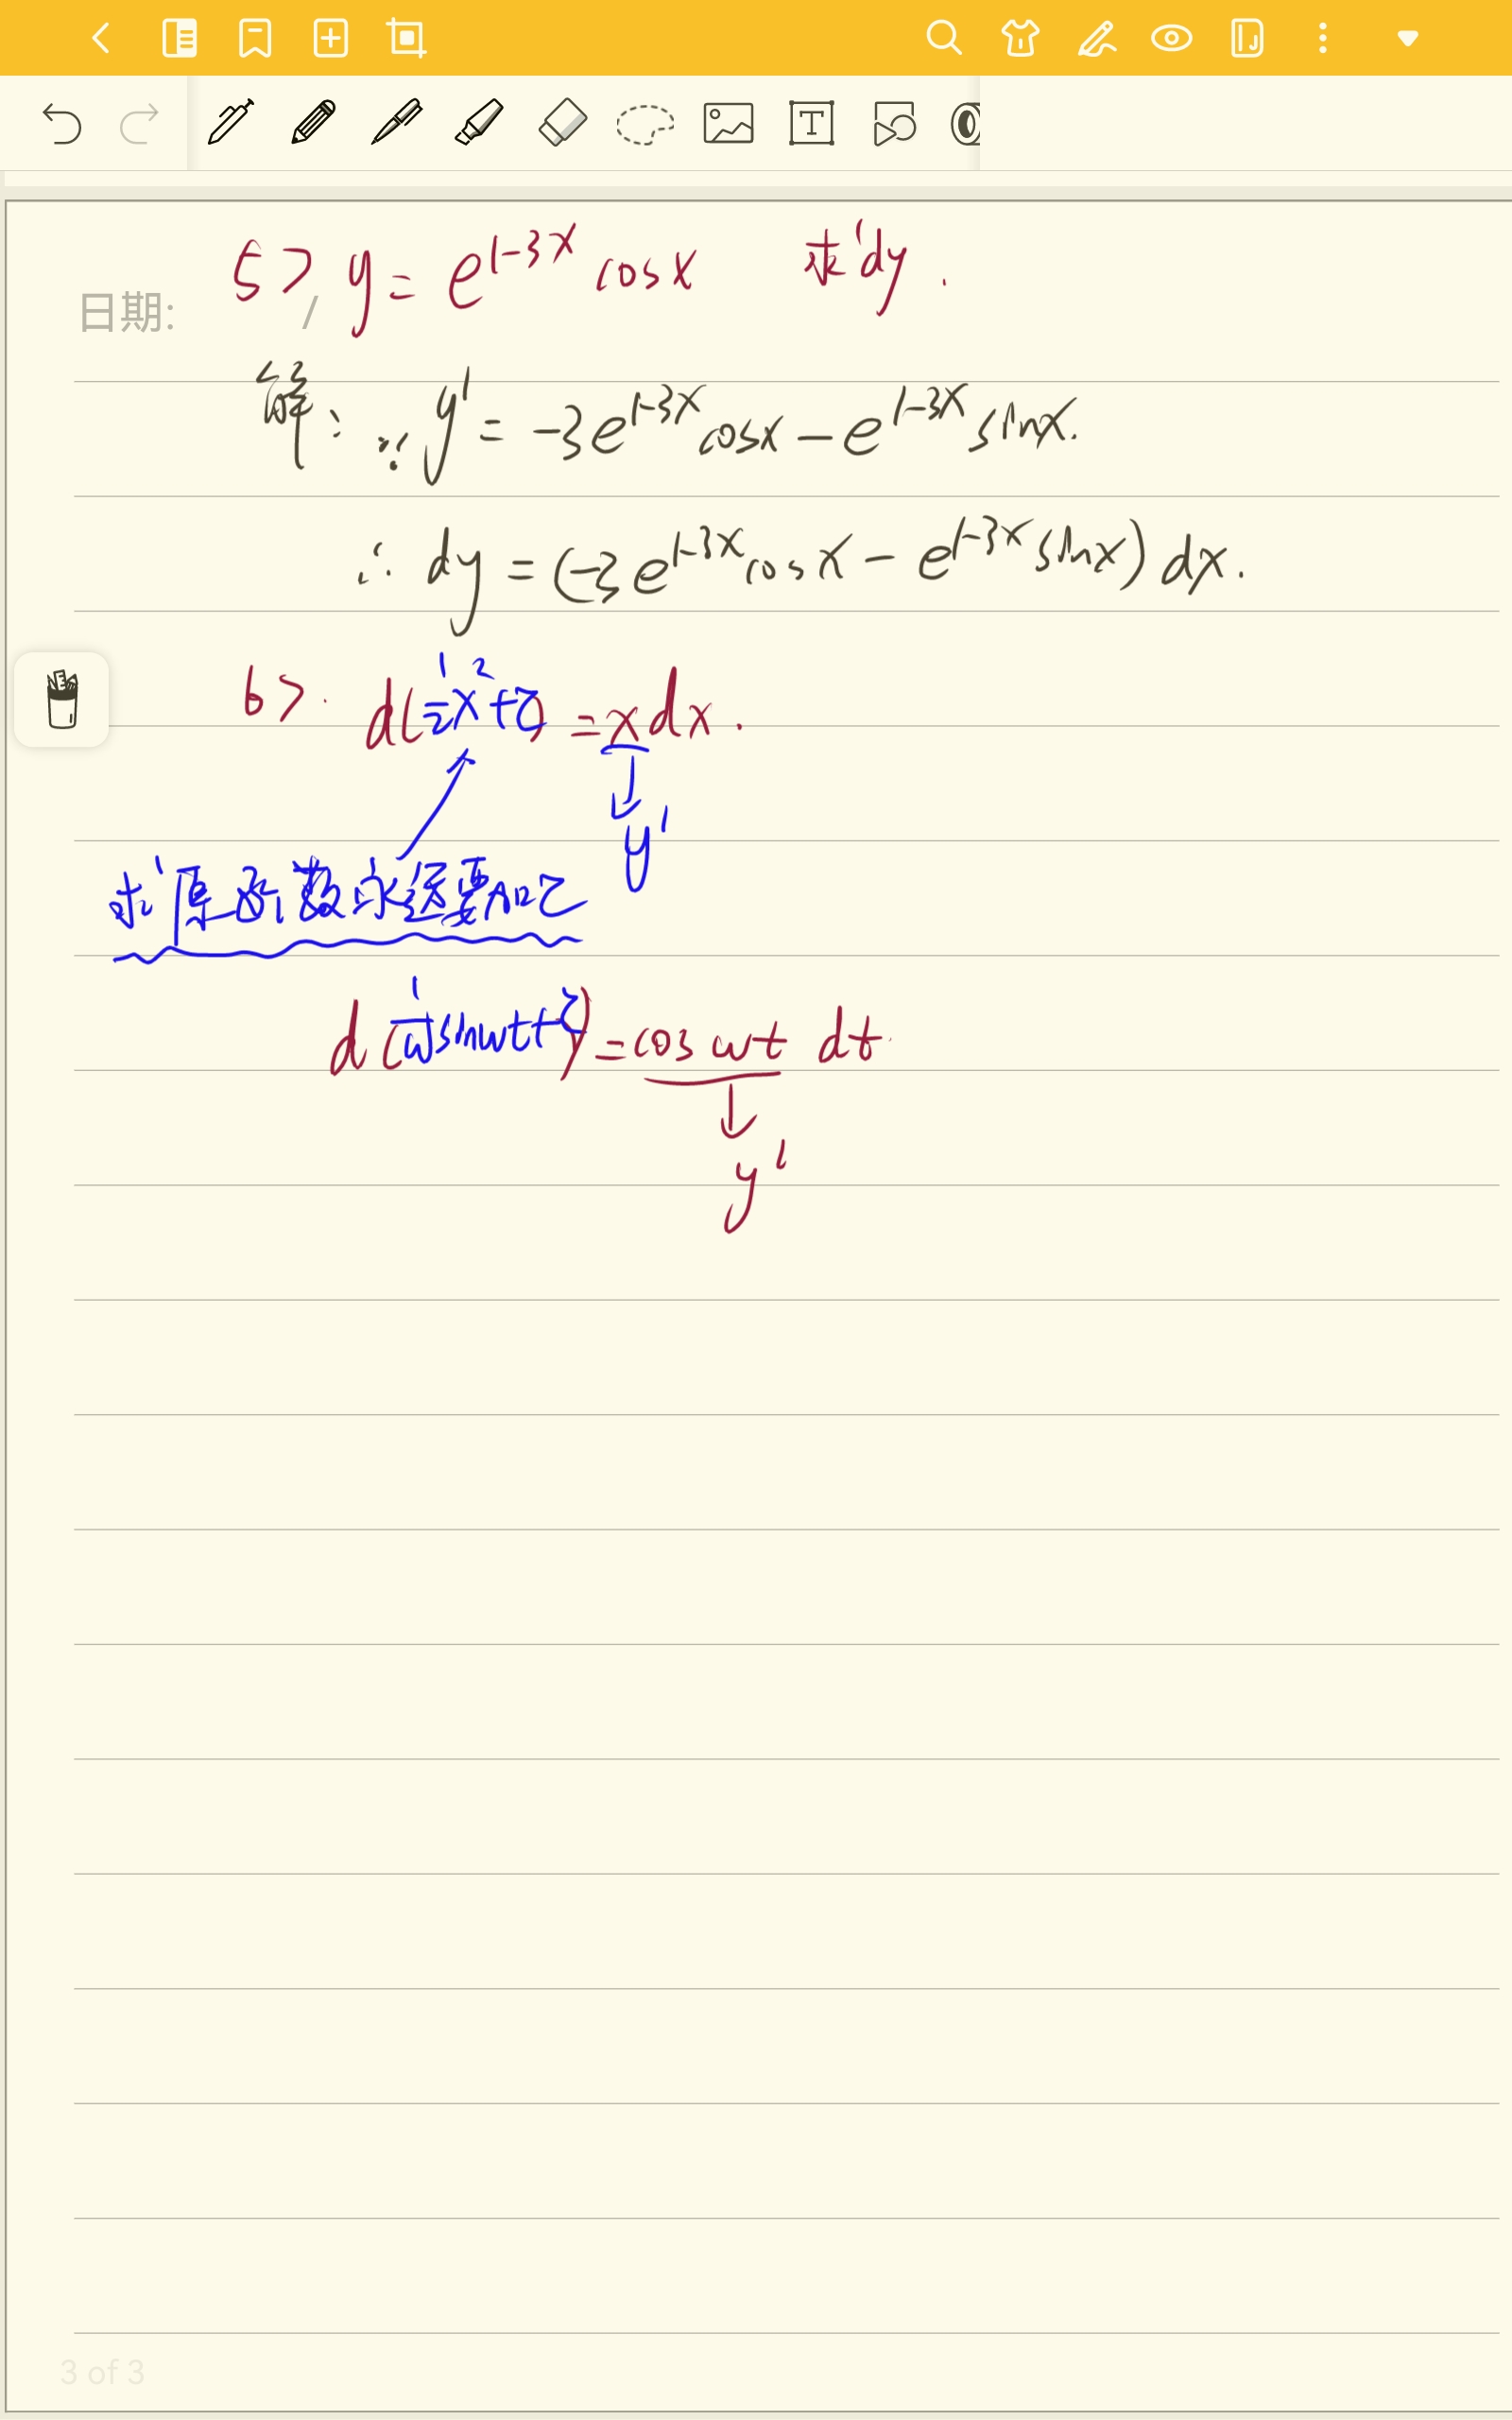 5> y = e^{1-3x} cosx 求dy.
日期: /
解: ∵ y' = -3e^{1-3x}cosx - e^{1-3x}sinx.
∴ dy = (-3e^{1-3x}cosx - e^{1-3x}sinx) dx.
6>. d(½x²+C) = xdx.
y'
求原函数永远要加C
d(1/ω sinωt+C) = cos ωt dt.
y'
3 of 3